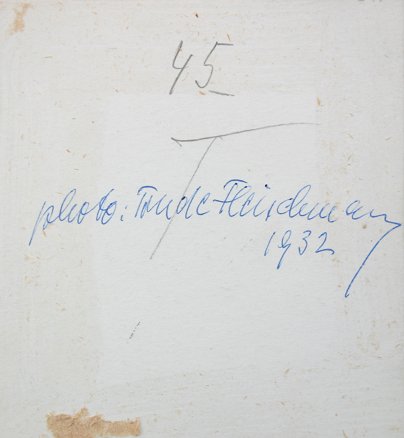 45
photo: Trude Fleischmann
1932